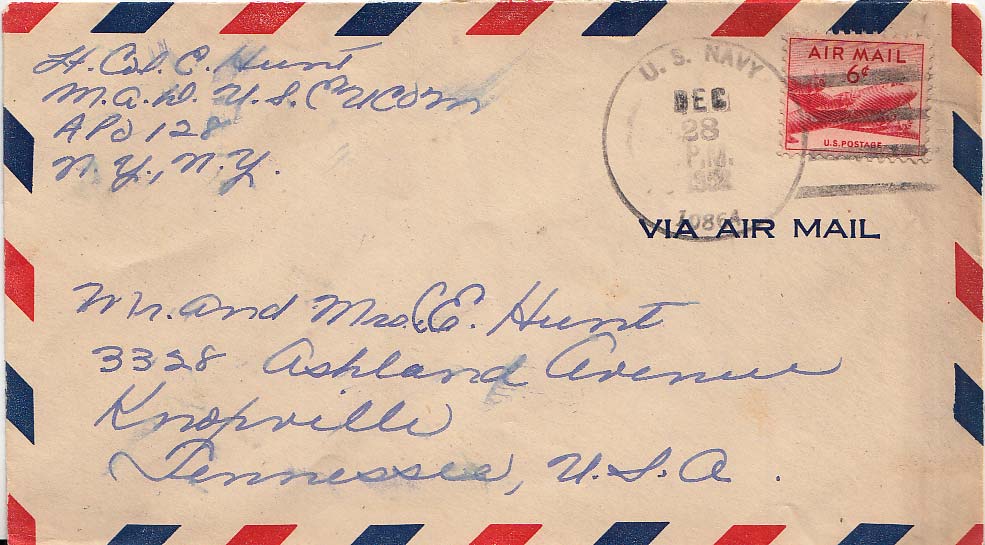 Lt. Col. C. Hunt
M.A.D. U.S. EUCOM
APO 128
N.Y., N.Y.
U. S. NAVY
DEC
28
P.M.
AIR MAIL
6¢
U.S. POSTAGE
VIA AIR MAIL
Mr. and Mrs. C. E. Hunt
3328 Ashland Avenue
Knoxville
Tennessee, U.S.A.